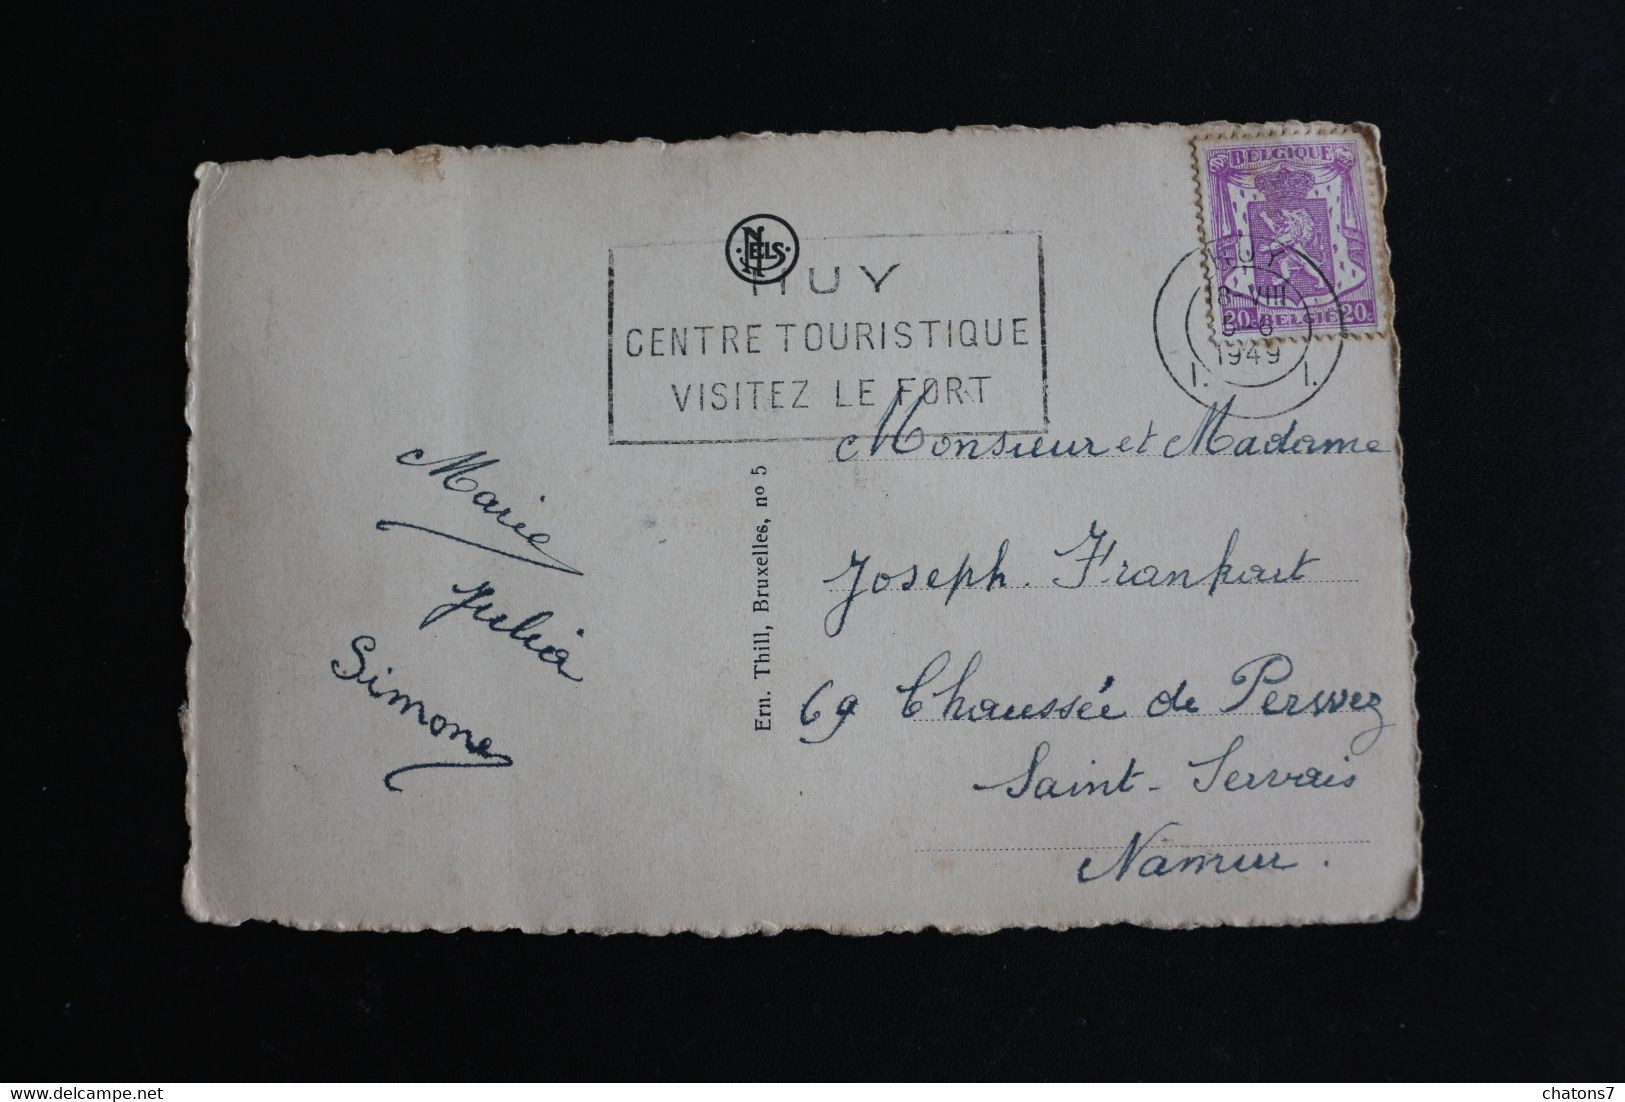 BELGIQUE
20c BELGIE 20c
NELS
HUY
CENTRE TOURISTIQUE
VISITEZ LE FORT
HUY
8 VIII
1949
I. I.
Monsieur et Madame
Joseph. Frankart
69 Chaussée de Perwez
Saint-Servais
Namur.
Marie
Julia
Simone
Ern. Thill, Bruxelles, nº 5
delcampe.net
chatons7